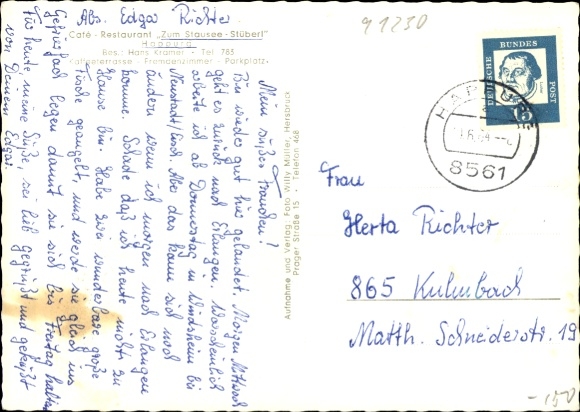 Abs. Edgar Richter
Café - Restaurant "Zum Stausee-Stüberl"
Happurg
Bes.: Hans Kramer - Tel 783
Kaffeeterrasse - Fremdenzimmer - Parkplatz
91230
Mein süßes Frauchen!
Bin wieder gut hier gelandet. Morgen Mittwoch
geht es zurück nach Erlangen. Wahrscheinlich
arbeite ich ab Donnerstag in Windsheim bei
Neustadt/Aisch. Aber das kann sich noch
ändern wenn ich morgen nach Erlangen
komme. Schade daß ich heute nicht zu
Hause bin. Habe zwei wunderbare große
Fische geangelt, und werde sie gleich ins
Gefrierfach legen damit sie sich bis Freitag halten
Für heute, meine Süße, sei lieb gegrüßt und geküßt
von Deinem Edgar.
Aufnahme und Verlag: Foto Willy Müller, Hersbruck
Prager Straße 15 - Telefon 468
DEUTSCHE
BUNDES
POST
15
8561
Frau
Herta Richter
865 Kulmbach
Matth. Schneiderstr. 19
-150